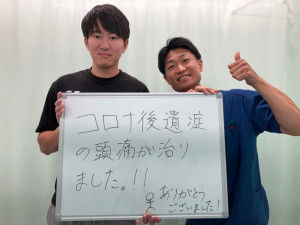 コロナ後遺症
の頭痛が治り
ました。!!
ありがとう
ございました!